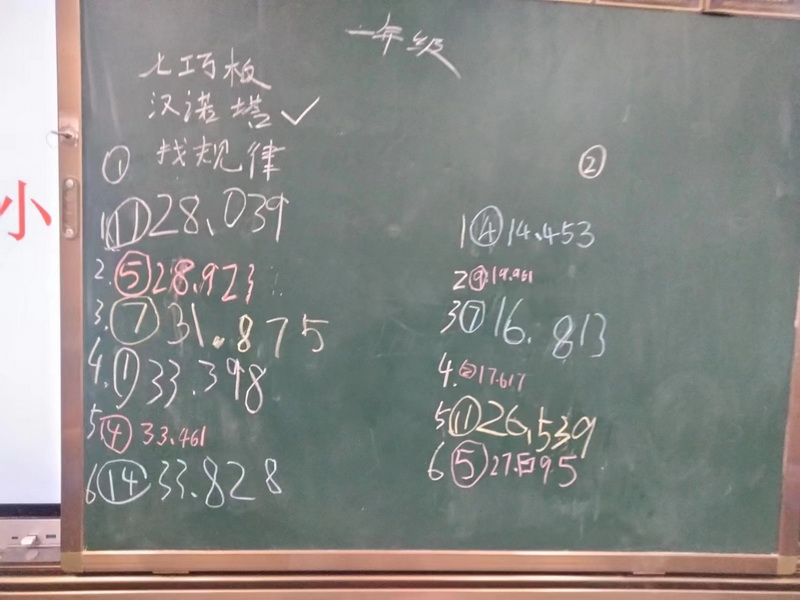 一年级
七巧板
汉诺塔✓
① 找规律
1 ⑪ 28.039
2. ⑤ 28.923
3. ⑦ 31.875
4. ① 33.398
5 ④ 33.461
6 ⑭ 33.828
②
1 ④ 14.453
3 ⑦ 16.813
4. ② 17.617
5 ⑪ 26.539
6 ⑤ 95
小